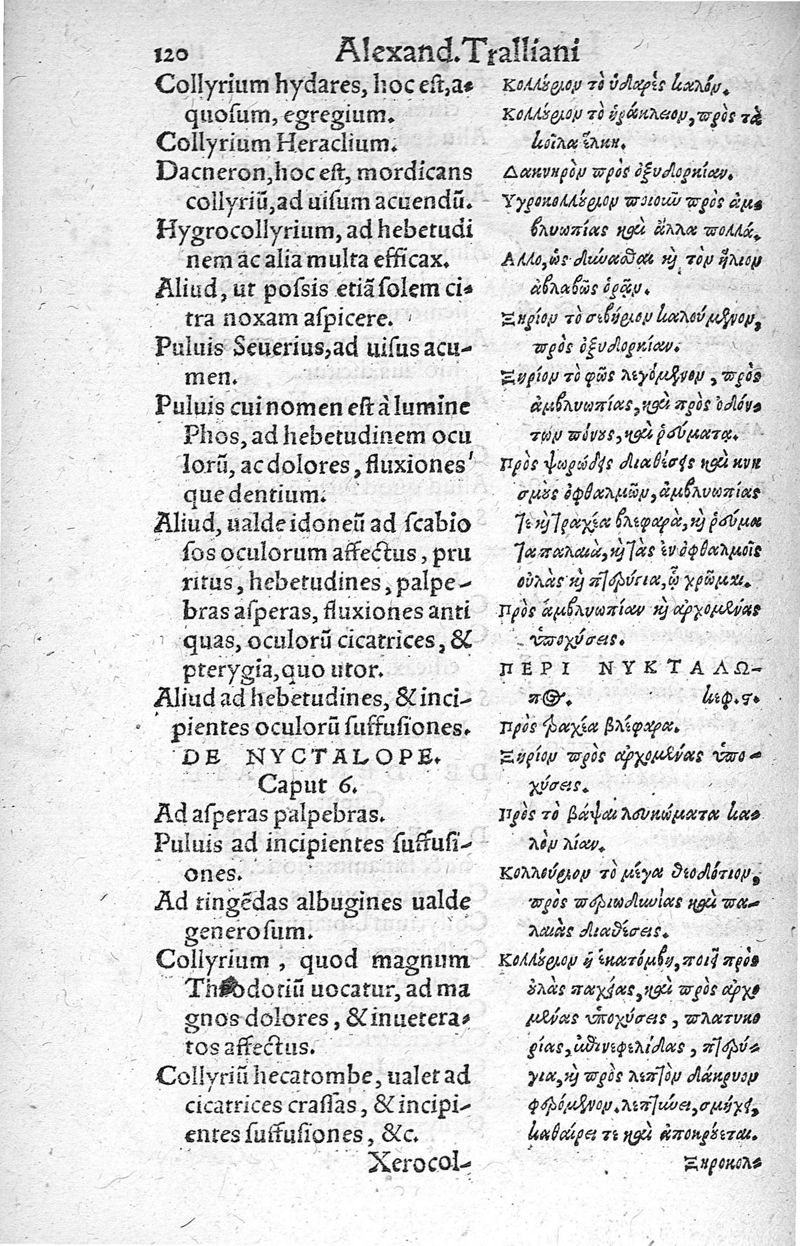 120 Alexand. Tralliani
Collyrium hydares, hoc est, a-
quosum, egregium.
Collyrium Heraclium.
Dacneron, hoc est, mordicans
collyriū, ad uisum acuendū.
Hygrocollyrium, ad hebetudi
nem ac alia multa efficax.
Aliud, ut possis etiā solem ci-
tra noxam aspicere.
Puluis Seuerius, ad uisus acu-
men.
Puluis cui nomen est à lumine
Phos, ad hebetudinem ocu
lorū, ac dolores, fluxiones'
que dentium.
Aliud, ualde idoneū ad scabio
sos oculorum affectus, pru
ritus, hebetudines, palpe-
bras asperas, fluxiones anti
quas, oculorū cicatrices, &
pterygia, quo utor.
Aliud ad hebetudines, & inci-
pientes oculorū suffusiones.
DE NYCTALOPE.
Caput 6.
Ad asperas palpebras.
Puluis ad incipientes suffusi-
ones.
Ad tingēdas albugines ualde
generosum.
Collyrium, quod magnum
Theodotiū uocatur, ad ma
gnos dolores, & inuetera-
tos affectus.
Collyriū hecatombe, ualet ad
cicatrices crassas, & incipi-
entes suffusiones, &c.
Xerocol-
Κολλύριον τὸ ὑδαρὲς καλόν.
Κολλύριον τὸ ἡράκλειον, πρὸς τὰ
κοῖλα ἕλκη.
Δακνηρὸν πρὸς ὀξυδορκίαν.
Υγροκολλύριον ποιοῦν πρὸς ἀμ-
βλυωπίας καὶ ἄλλα πολλά.
Αλλο, ὡς δύνασθαι καὶ τὸν ἥλιον
ἀβλαβῶς ὁρᾷν.
Ξηρίον τὸ σεβήριον καλούμενον,
πρὸς ὀξυδορκίαν.
Ξηρίον τὸ φῶς λεγόμενον, πρὸς
ἀμβλυωπίας, καὶ πρὸς ὀδόν-
των πόνους, καὶ ῥεύματα.
Πρὸς ψωρώδεις διαθέσεις καὶ κνη
σμοὺς ὀφθαλμῶν, ἀμβλυωπίας
τε καὶ τραχέα βλεφαρὰ, καὶ ῥεύμα
τα παλαιὰ, καὶ τὰς ἐν ὀφθαλμοῖς
οὐλὰς καὶ πτερύγια, ᾧ χρῶμαι.
Πρὸς ἀμβλυωπίαν καὶ ἀρχομένας
ὑποχύσεις.
ΠΕΡΙ ΝΥΚΤΑΛΩ-
πος. κεφ. ϛ.
Πρὸς τραχέα βλέφαρα.
Ξηρίον πρὸς ἀρχομένας ὑπο-
χύσεις.
Πρὸς τὸ βάψαι λευκώματα κα-
λὸν λίαν.
Κολλούριον τὸ μέγα θεοδότιον,
πρὸς περιωδυνίας καὶ πα-
λαιὰς διαθέσεις.
Κολλύριον ἡ ἑκατόμβη, ποιεῖ πρὸς
οὐλὰς παχείας, καὶ πρὸς ἀρχο
μένας ὑποχύσεις, πλατυκο
ρίας, πτερύ-
για, καὶ πρὸς λεπτὸν δάκρυον
φερόμενον. λεπτύνει, σμήχει,
καθαίρει τε καὶ ἀποκρούεται.
Ξηροκολ-